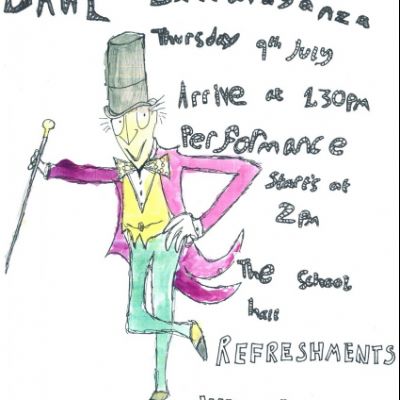 DAHL Extravaganza
Thursday 9th July
Arrive at 1.30pm
Performance
Starts at
2pm
The School
hall
REFRESHMENTS